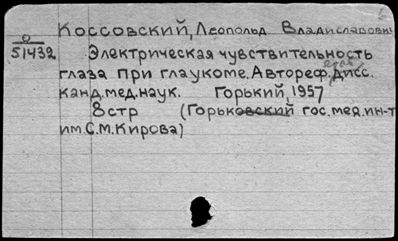 Коссовский, Леопольд Владиславович
0
51432
Электрическая чувствительность
глаза при глаукоме. Автореф. дисс.
канд. мед. наук. Горький, 1957
8 стр (Горьковский гос. мед. ин-т
им. С.М. Кирова)